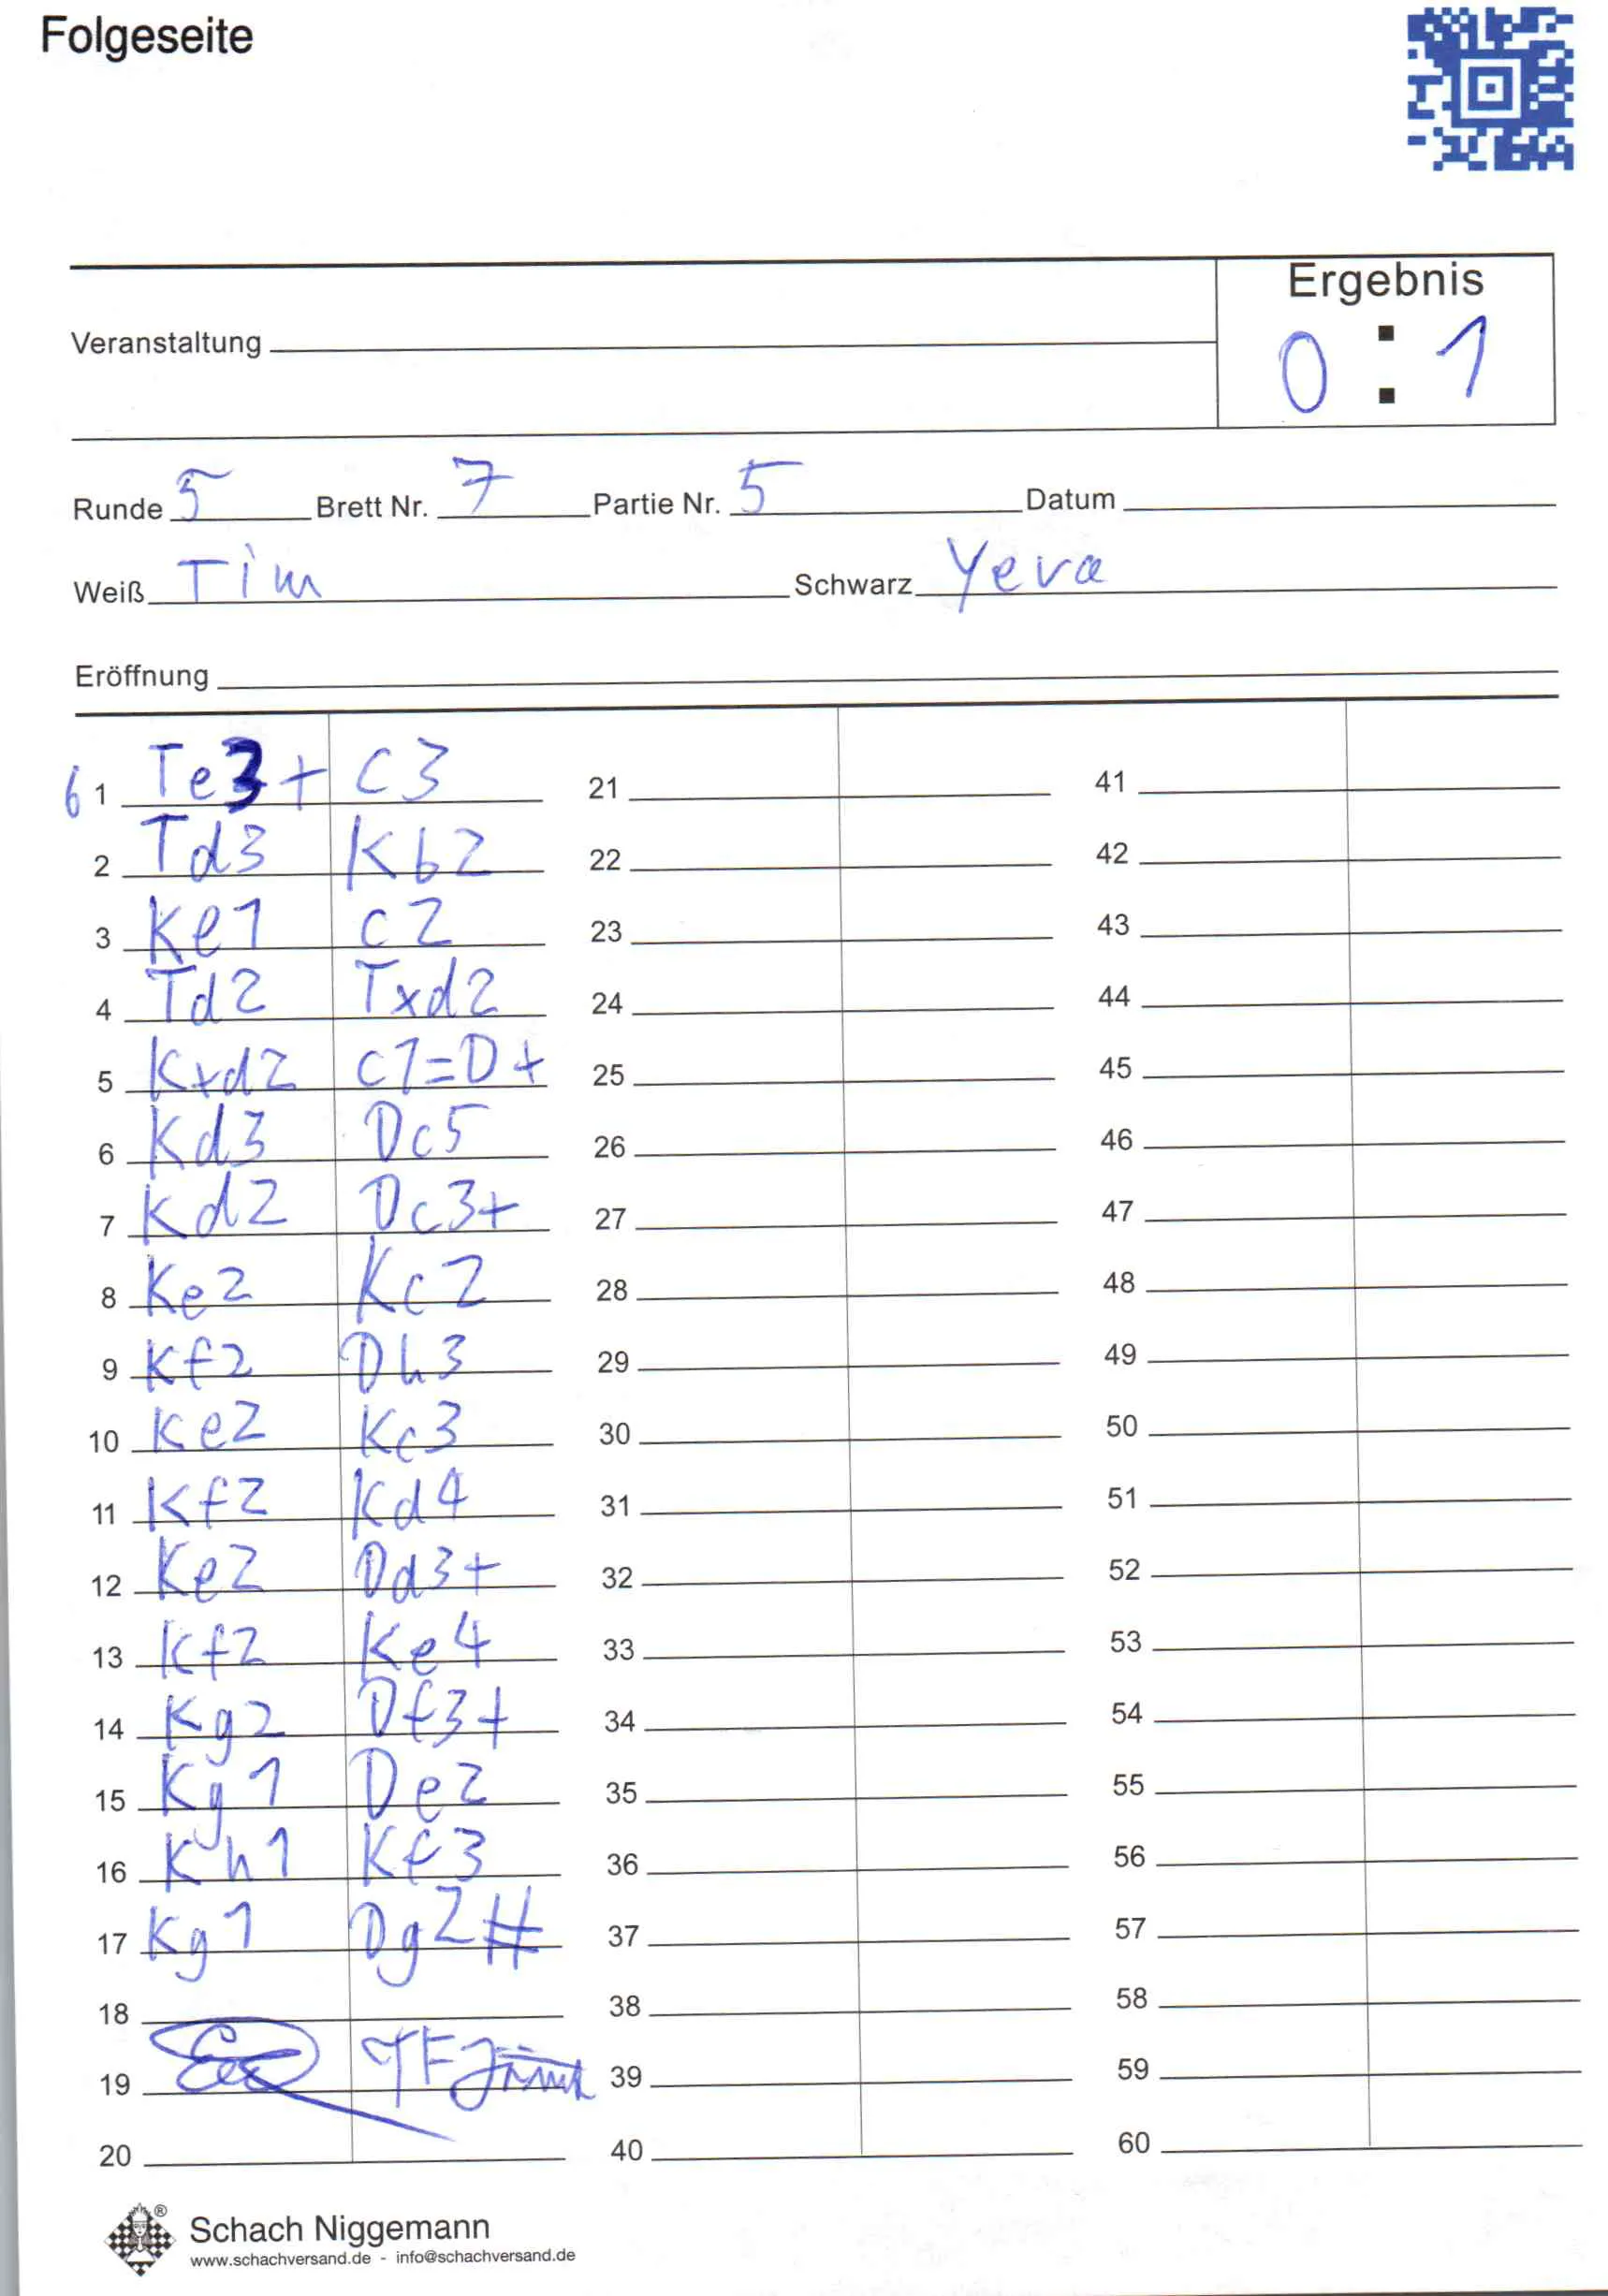 Folgeseite
Ergebnis
0 : 1
Veranstaltung
Runde 5 Brett Nr. 7 Partie Nr. 5 Datum
Weiß Tim Schwarz Yeva
Eröffnung
61 Te3+ c3 21 41
2 Td3 Kb2 22 42
3 Ke1 c2 23 43
4 Td2 Txd2 24 44
5 Kxd2 c1=D+ 25 45
6 Kd3 Dc5 26 46
7 Kd2 Dc3+ 27 47
8 Ke2 Kc2 28 48
9 Kf2 Dh3 29 49
10 Ke2 Kc3 30 50
11 Kf2 Kd4 31 51
12 Ke2 Dd3+ 32 52
13 Kf2 Ke4 33 53
14 Kg2 Df3+ 34 54
15 Kg1 De2 35 55
16 Kh1 Kf3 36 56
17 Kg1 Dg2# 37 57
18 38 58
19 39 59
20 40 60
Schach Niggemann
www.schachversand.de - info@schachversand.de